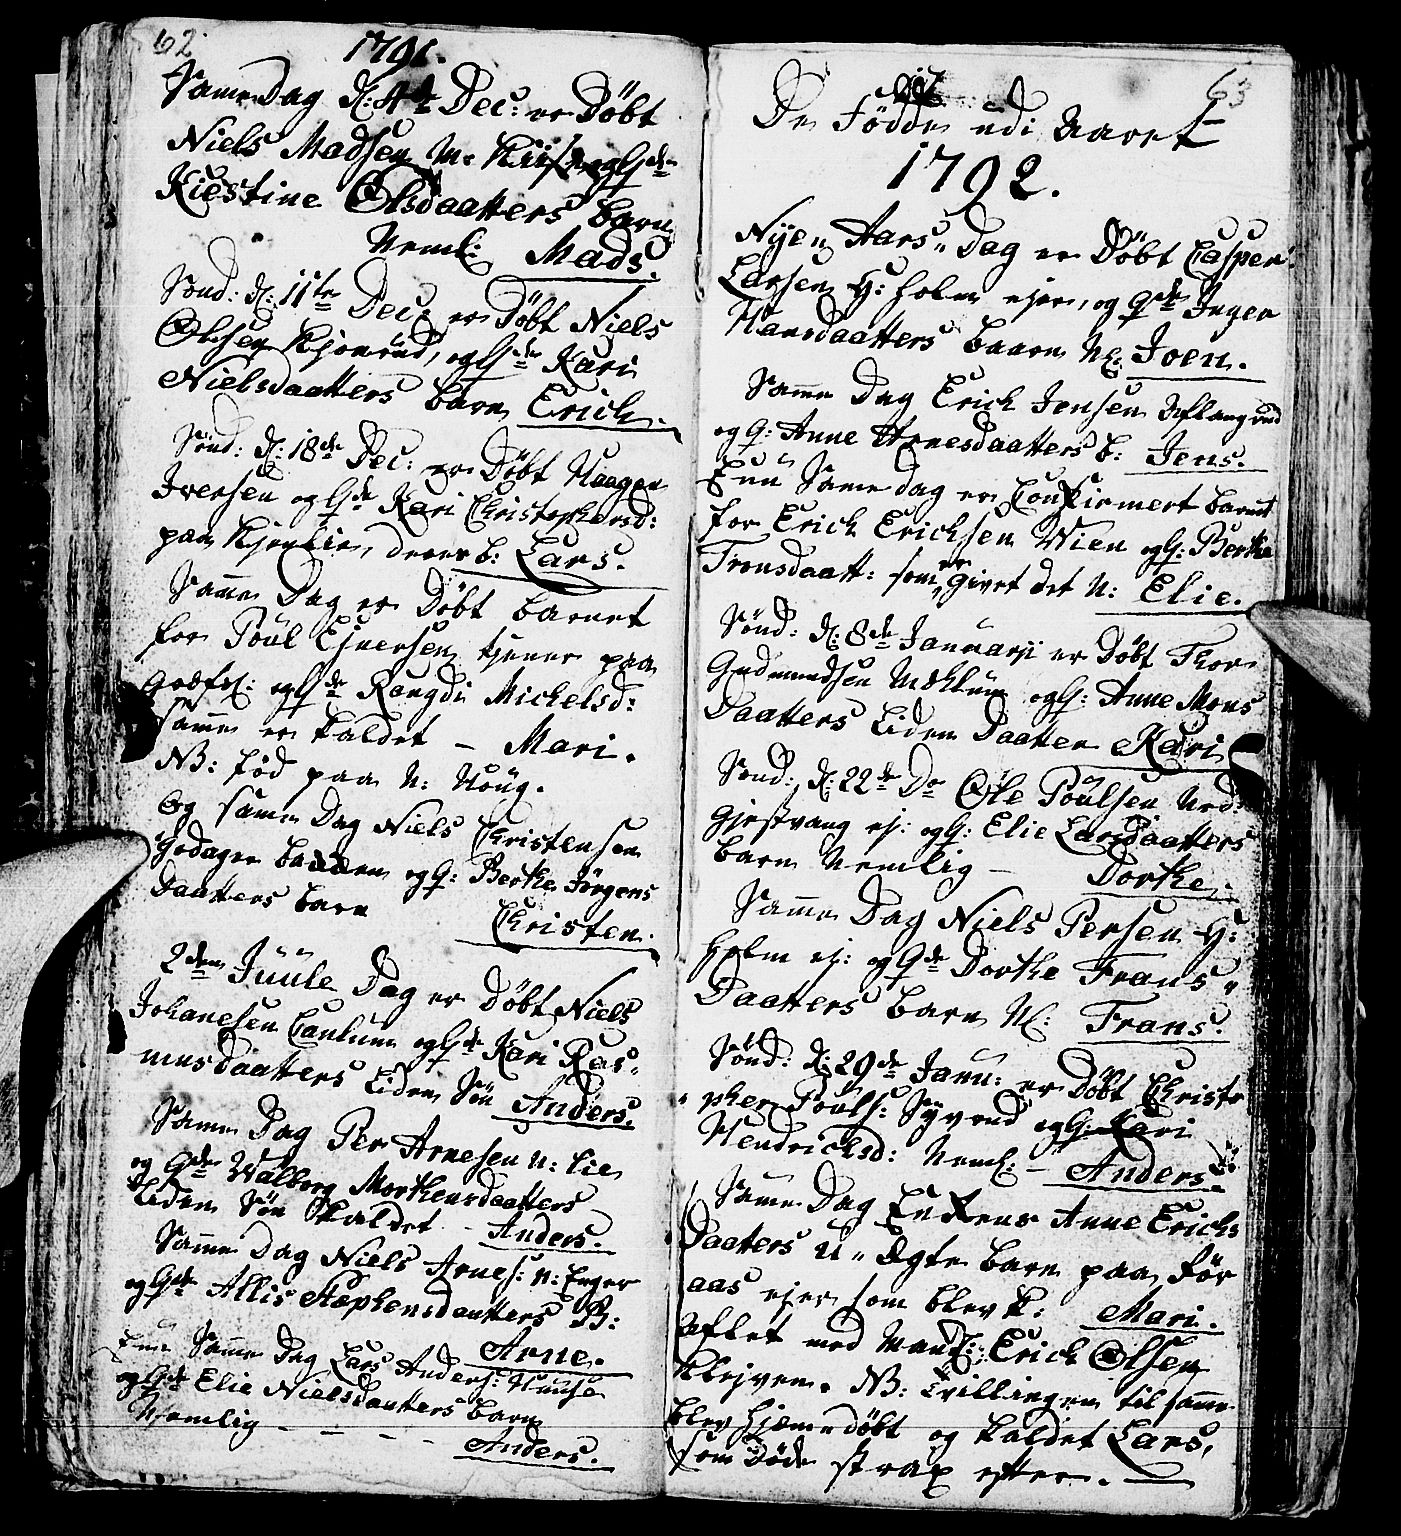 62
1791.
Samme Dag d: 4de Dec: er Døbt
Niels Madsen og Gde
Kiestine Olsdaatters barn
Neml: Mads.
Sönd: d: 11te Dec: er Döbt Niels
Olsen Kjonerud, og Gde Kari
Nielsdaatters barn Erich.
Sönd: d: 18de Dec: er Döbt Haagen
Iversen og Gde Kari Christophersd:
paa deres b: Lars.
Samme Dag er Döbt barnet
for Poül Ejversen tjener paa
og Gde Rangdi Michelsd:
samme er kaldet - Mari.
NB: född paa N: Houg.
Og samme Dag Niels Christensen
Godager og G: Berthe Jörgens
Daatters barn Christen.
2den Juule Dag er Döbt Niels
Johanesen og Gde Kari Ras-
musdaatters liden Sön Anders.
Samme Dag Per Arnesen N: Lie
og Gde Walborg Morthensdaatters
liden Sön kaldet - Anders.
Samme Dag Niels Arnes: N: Enger
og Gde Allis Stephensdaatters B:
Arne.
Enu Samme Dag Lars Anders:
og Gde Elie Nielsdaatters barn
Nemlig - - - - Anders.
63
De Födde udi Aaret
1792.
Nyen Aars Dag er Döbt Casper
Larsen H: holm ejer, og Gde Inger
Hansdaatters baarn N: Joen.
Samme Dag Erich Jensen
og G: Anne Arnesdaatters b: Jens.
Enu Samme dag er Confirmert barnet
for Erich Erichsen Wien og G: Berthe
Tronsdaatt: som er givet det N: Elie.
Sönd: d: 8de Januarji er Döbt Thor
Gudmundsen og G: Anne Mons
Daatters liden Daatter Kari
Sönd: d: 22de Do Ole Poülsen Ned:
Gjestvang ej: og G: Elie Larsdaatters
barn Nemlig - Dorthe.
Samme Dag Niels Persen H:
holm ej: og Gde Dorthe Frans
Daatters barn N: Frans.
Sönd: d: 29de Janu: er Döbt Christo
pher Pouls: og G: Kari
Hendrichsd: Neml: - Anders.
Samme Dag Anne Erichs
Daatters U-Ægte barn paa För
aas ejer som blev k: Mari.
Aflet med Erich Olsen
Klejven. NB: Tvillingen til samme
blev hjemmedöbt og kaldet Lars,
som Döde strax efter.